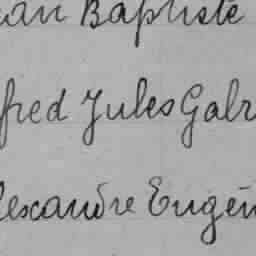 ean Baptiste
fred Jules Gabr
lexandre Eugèn